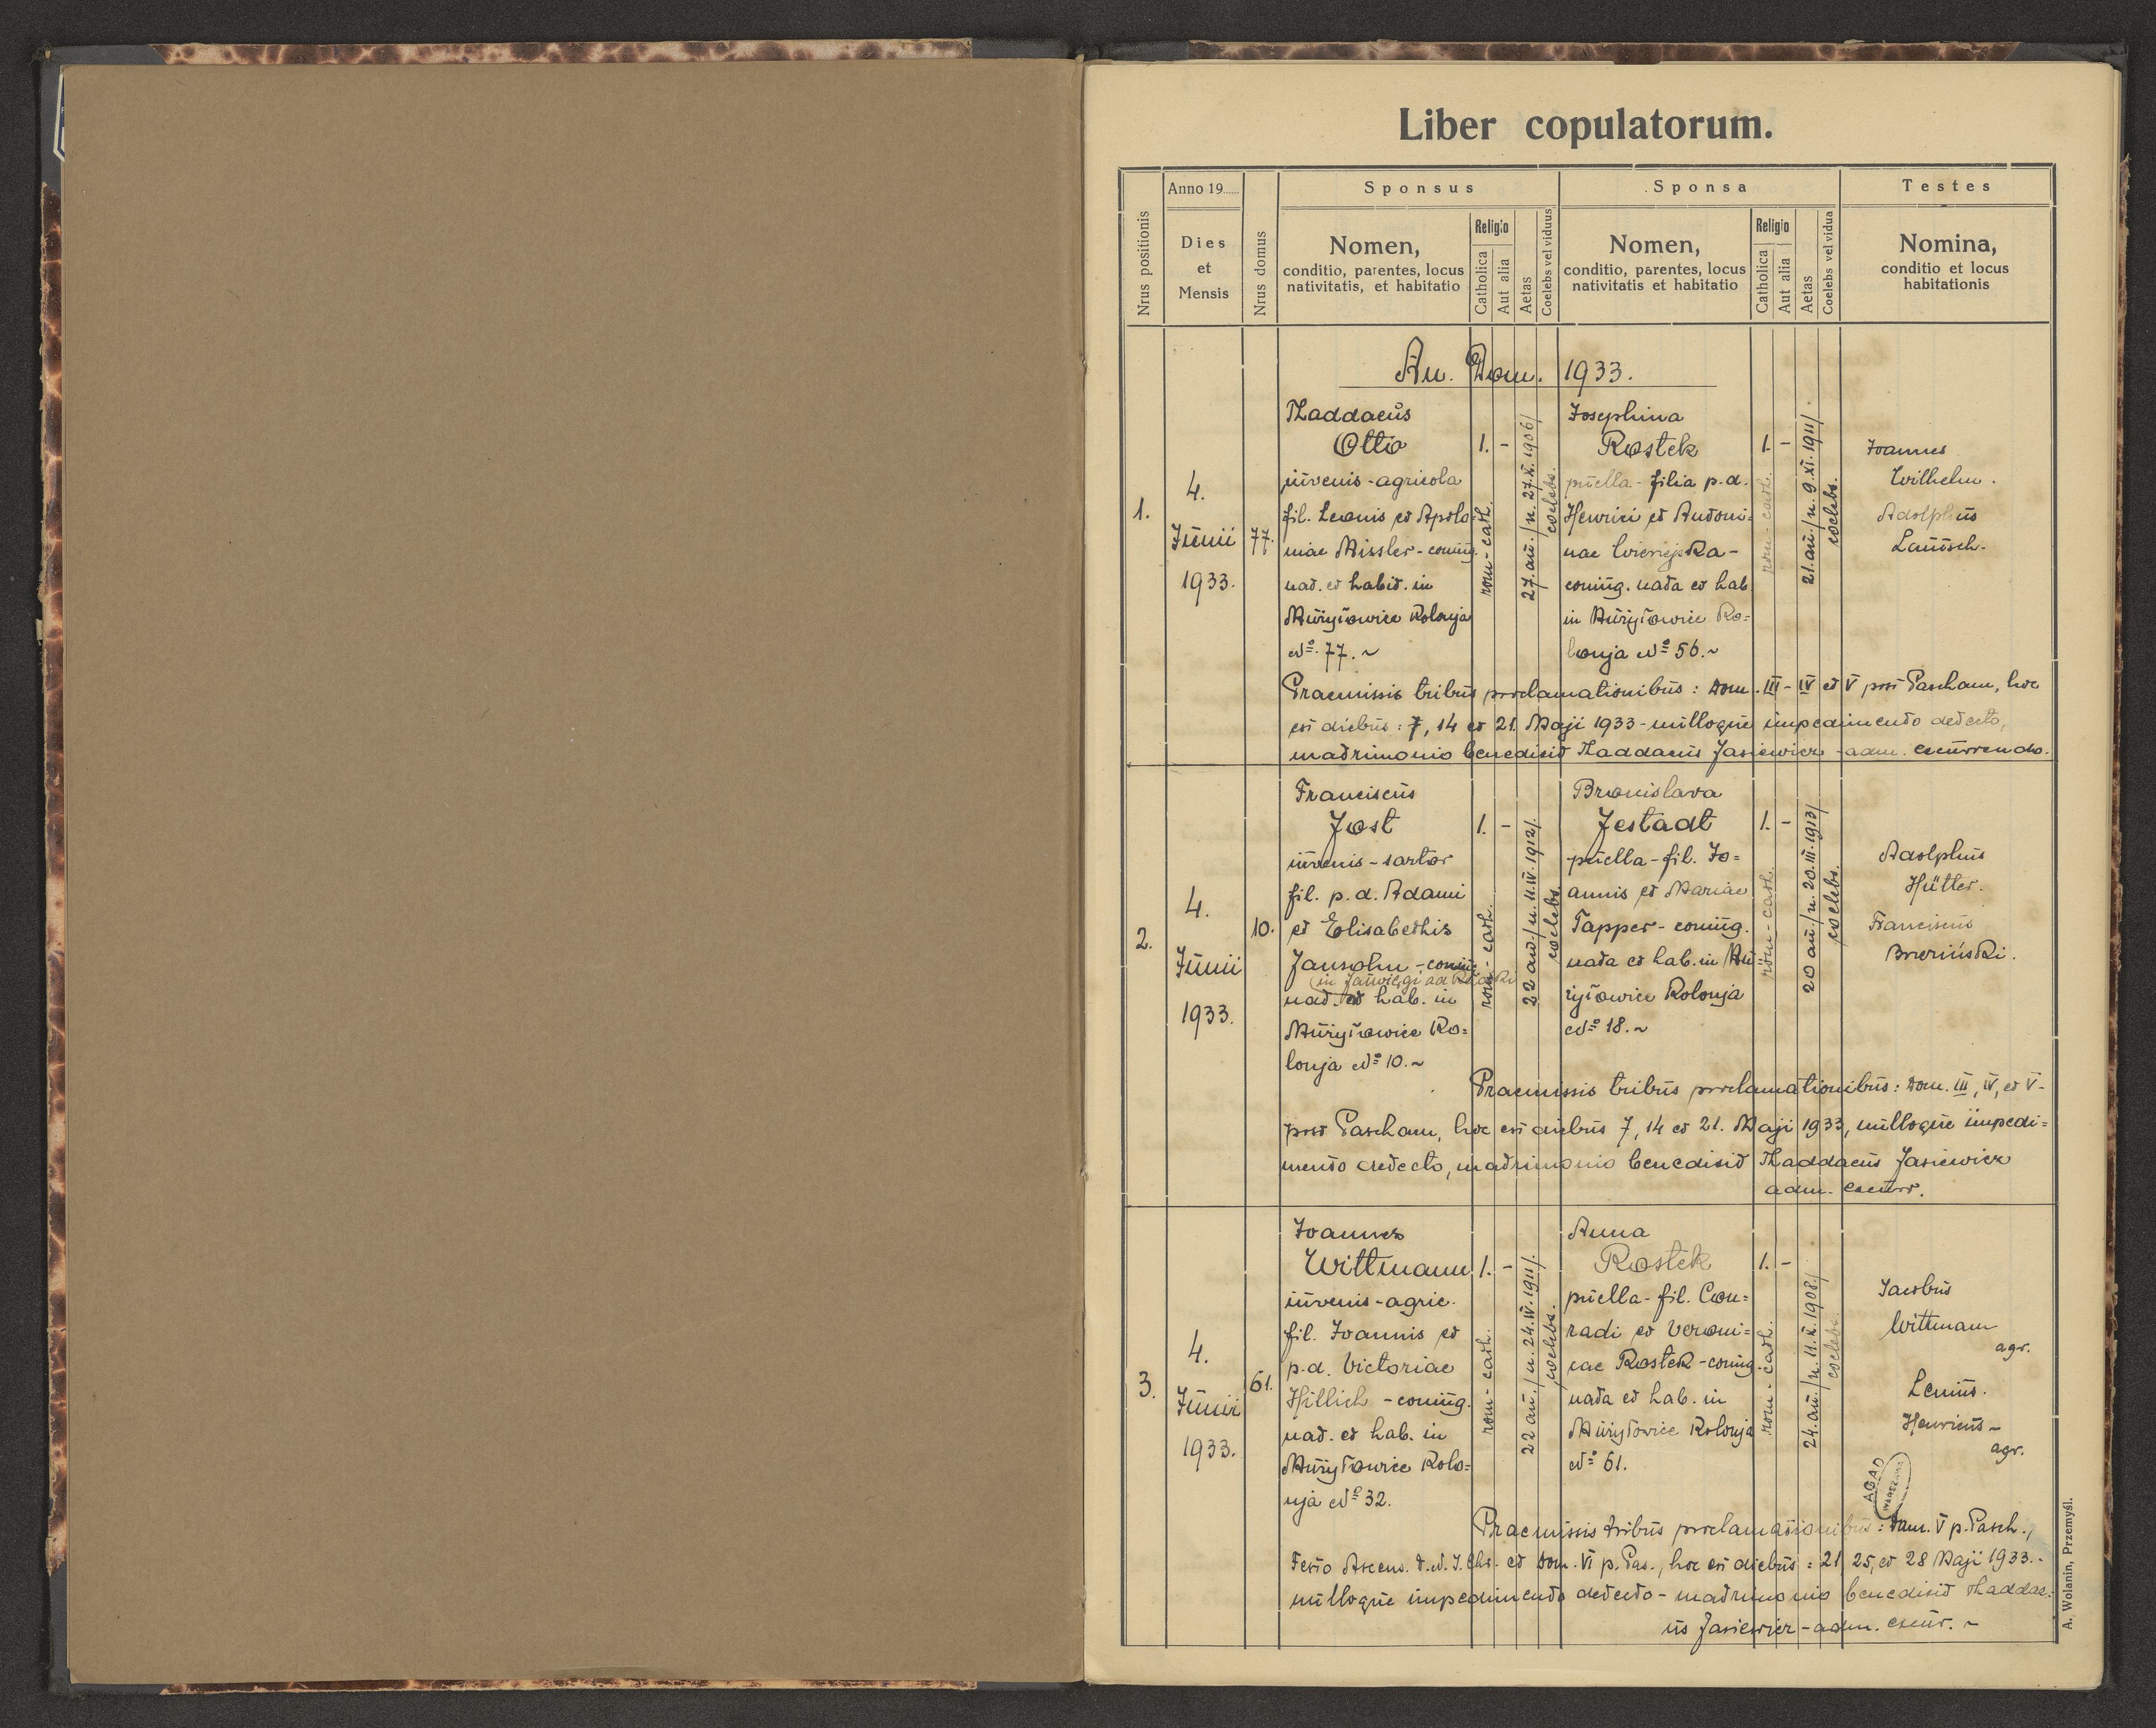 Liber copulatorum.
Nrus positionis
Anno 19......
Dies
et
Mensis
Nrus domus
Sponsus
Nomen,
conditio, parentes, locus
nativitatis, et habitatio
Religio
Catholica
Aut alia
Aetas
Coelebs vel viduus
Sponsa
Nomen,
conditio, parentes, locus
nativitatis et habitatio
Religio
Catholica
Aut alia
Aetas
Coelebs vel vidua
Testes
Nomina,
conditio et locus
habitationis
An. Dom. 1933.
1.
4.
Junii
1933.
77.
Thaddaeus
Otto
iuvenis - agricola
fil. Leonis et Apolo-
niae Missler - coniug.
nat. et habit. in
Muryłowice Kolonja
Nº. 77. ~
1. -
rom - cath.
27. an. / n. 27. X. 1906 /
coelebs.
Josephina
Rostek
puella - filia p. d.
Henrici et Antoni=
nae
coniug. nata et hab.
in Muryłowice Ko=
lonja Nº 56. ~
1. -
rom - cath.
21. an. / n. 9. XI. 1911 /
coelebs.
Joannes
Wilhelm.
Adolphus
Lauisch.
Praemissis tribus proclamationibus: Dom. III - IV et V post Pascham, hoc
est diebus: 7, 14 et 21. Maji 1933 - nulloque impedimento detecto,
matrimonio benedixit Thaddaeus Jasiewicz - adm. excurrendo.
2.
4.
Junii
1933.
10.
Franciscus
Jost
iuvenis - sartor
fil. p. d. Adami
et Elisabethis
Jansohn - coniug.
nat. et hab. in
Muryłowice Ko=
lonja Nº 10. ~
1. -
rom - cath.
22 an. / n. 11. IV. 1912 /.
coelebs.
Bronislava
Jestadt
puella - fil. Jo=
annis et Mariae
Tapper - coniug.
nata et hab. in Mu=
ryłowice Kolonja
Nº 18. ~
1. -
rom - cath.
20 an. / n. 20. III. 1913 /
coelebs.
Adolphus
Hütter.
Franciscus
Praemissis tribus proclamationibus: Dom. III, IV, et V -
post Pascham, hoc est diebus 7, 14 et 21. Maji 1933, nulloque impedi=
mento detecto, matrimonio benedixit Thaddaeus Jasiewicz
adm. excurr.
3.
4.
Junii
1933.
61.
Joannes
Wittmann
iuvenis - agric.
fil. Joannis et
p. d. Victoriae
Hillich - coniug.
nat. et hab. in
Muryłowice Kolo=
nja Nº 32.
1. -
rom - cath.
22 an. / n. 24. IV. 1911 /.
coelebs.
Anna
Rostek
puella - fil. Con=
radi et Veroni=
cae Rostek - coniug.
nata et hab. in
Muryłowice Kolonja
Nº 61.
1. -
rom - cath.
24. an. / n. 11. X. 1908 /
coelebs.
Jacobus
Wittmann
agr.
Henricus -
agr.
AGAD
WARSZAWA
Praemissis tribus proclamationibus: Dom. V p. Pasch.,
Festo Ascens. D. N. J. Chr. et Dom. VI p. Pas., hoc est diebus: 21, 25, et 28 Maji 1933. -
nulloque impedimento detecto - matrimonio benedixit Thaddae=
us Jasiewicz - adm. excur. ~
A. Wolanin, Przemyśl.